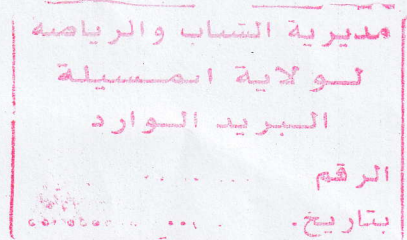 مديرية الشباب والرياضة
لولاية المسيلة
البريد الوارد
الرقم
بتاريخ.